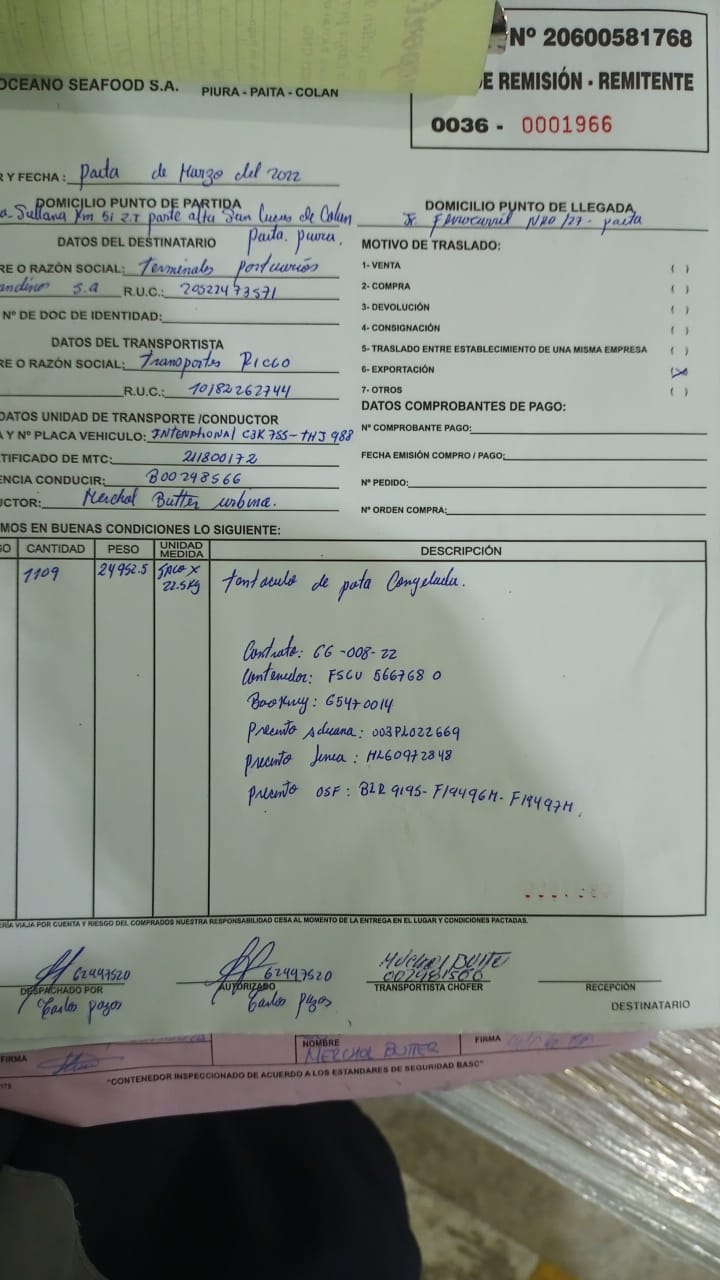 Nº 20600581768
OCEANO SEAFOOD S.A. PIURA - PAITA - COLAN
DE REMISIÓN - REMITENTE
0036 - 0001966
R Y FECHA: Paita de Marzo del 2022
DOMICILIO PUNTO DE PARTIDA
a- Sullana Km 51 Z.I parte alta San Lucas de Colan
Paita. piura.
DOMICILIO PUNTO DE LLEGADA
Jr. Ferrocarril NRO 127 - paita
DATOS DEL DESTINATARIO
RE O RAZÓN SOCIAL: Terminales portuarios
andinos s.a R.U.C.: 20522473571
Nº DE DOC DE IDENTIDAD:
DATOS DEL TRANSPORTISTA
RE O RAZÓN SOCIAL: Transportes Ricco
R.U.C.: 10182262744
DATOS UNIDAD DE TRANSPORTE /CONDUCTOR
A Y Nº PLACA VEHICULO: INTENPHONAL C3K 755 - THJ 988
TIFICADO DE MTC: 211800172
ENCIA CONDUCIR: B00298566
UCTOR: Merchol Butter urbina.
MOTIVO DE TRASLADO:
1- VENTA ( )
2- COMPRA ( )
3- DEVOLUCIÓN ( )
4- CONSIGNACIÓN ( )
5- TRASLADO ENTRE ESTABLECIMIENTO DE UNA MISMA EMPRESA ( )
6- EXPORTACIÓN (X)
7- OTROS ( )
DATOS COMPROBANTES DE PAGO:
Nº COMPROBANTE PAGO:
FECHA EMISIÓN COMPRO / PAGO:
Nº PEDIDO:
Nº ORDEN COMPRA:
MOS EN BUENAS CONDICIONES LO SIGUIENTE:
GO CANTIDAD PESO UNIDAD MEDIDA DESCRIPCIÓN
1109 24952.5 SACO X 22.5 Kg tentaculo de pota Congelada.
Contrato: CG -008-22
Contenedor: FSCU 566768 0
Booking: 65470014
Precinto Aduana: 003PL022669
Precinto linea: HL60972848
Precinto OSF: BLR 9195- F19496M- F19497M.
RÍA VIAJA POR CUENTA Y RIESGO DEL COMPRADOS NUESTRA RESPONSABILIDAD CESA AL MOMENTO DE LA ENTREGA EN EL LUGAR Y CONDICIONES PACTADAS.
62497520
DESPACHADO POR
Carlos pazos
62497520
AUTORIZADO
Carlos pazos
TRANSPORTISTA CHOFER
RECEPCIÓN
DESTINATARIO
FIRMA
NOMBRE
MERCHOL BUTTER
FIRMA
"CONTENEDOR INSPECCIONADO DE ACUERDO A LOS ESTANDARES DE SEGURIDAD BASC"